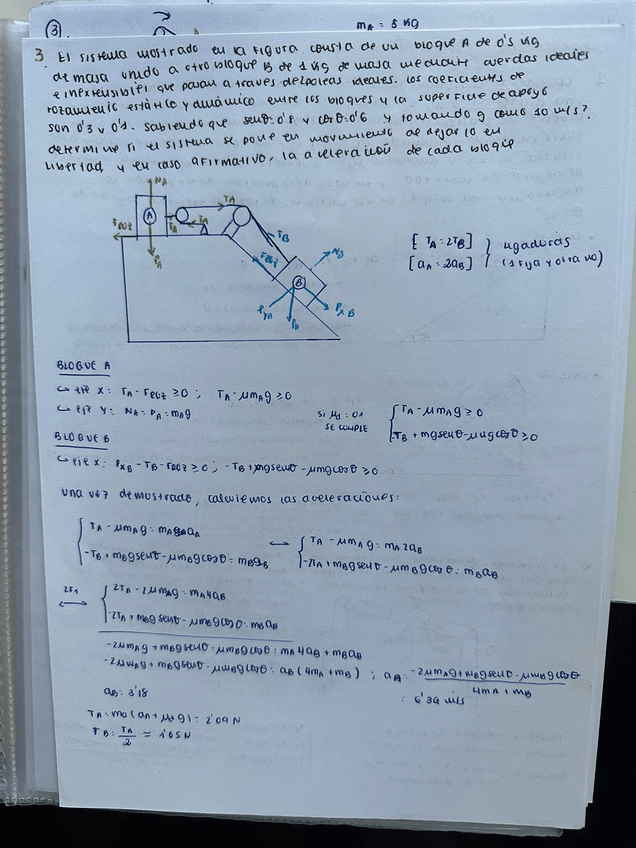 3
mA = 5 kg
3. El sistema mostrado en la figura consta de un bloque A de 0'5 kg
de masa unido a otro bloque B de 1 kg de masa mediante cuerdas ideales
e inextensibles que pasan a través de poleas ideales. Los coeficientes de
rozamiento estático y dinámico entre los bloques y la superficie de apoyo
son 0'3 y 0'1. Sabiendo que senθ: 0'8 y cosθ: 0'6 y tomando g como 10 m/s²,
determine si el sistema se pone en movimiento al dejarlo en
libertad, y en caso afirmativo, la aceleración de cada bloque
NA
A
TA
TA
TA
FROZ
PA
TB
FROZ
NB
B
PyB
PB
PxB
[TA = 2TB]
[aA = 2aB]
ligaduras
(1 fija y otra no)
BLOQUE A
↪ eje x: TA - FROZ ≥ 0 ; TA - μmAg ≥ 0
↪ eje y: NA = PA = mAg
si μd = 0'1
SE CUMPLE
TA - μmAg ≥ 0
TB + mgsenθ - μmgcosθ ≥ 0
BLOQUE B
↪ eje x: PxB - TB - FROZ ≥ 0 ; -TB + mgsenθ - μmgcosθ ≥ 0
una vez demostrado, calculemos las aceleraciones:
TA - μmAg = mA aA
-TB + mBgsenθ - μmBgcosθ = mBaB
↔
TA - μmAg = mA2aB
-2TA + mBgsenθ - μmBgcosθ = mBaB
↔
2TA - 2μmAg = mA4aB
-2TA + mBgsenθ - μmBgcosθ = mBaB
-2μmAg + mBgsenθ - μmBgcosθ = mA4aB + mBaB
-2μmAg + mBgsenθ - μmBgcosθ = aB(4mA + mB) ; aA: -2μmAg + mBgsenθ - μmBgcosθ
4mA + mB
aB: 3'18
: 6'36 m/s
TA = mA(aA + μdg) = 2'09 N
TB: TA/2 = 1'05 N